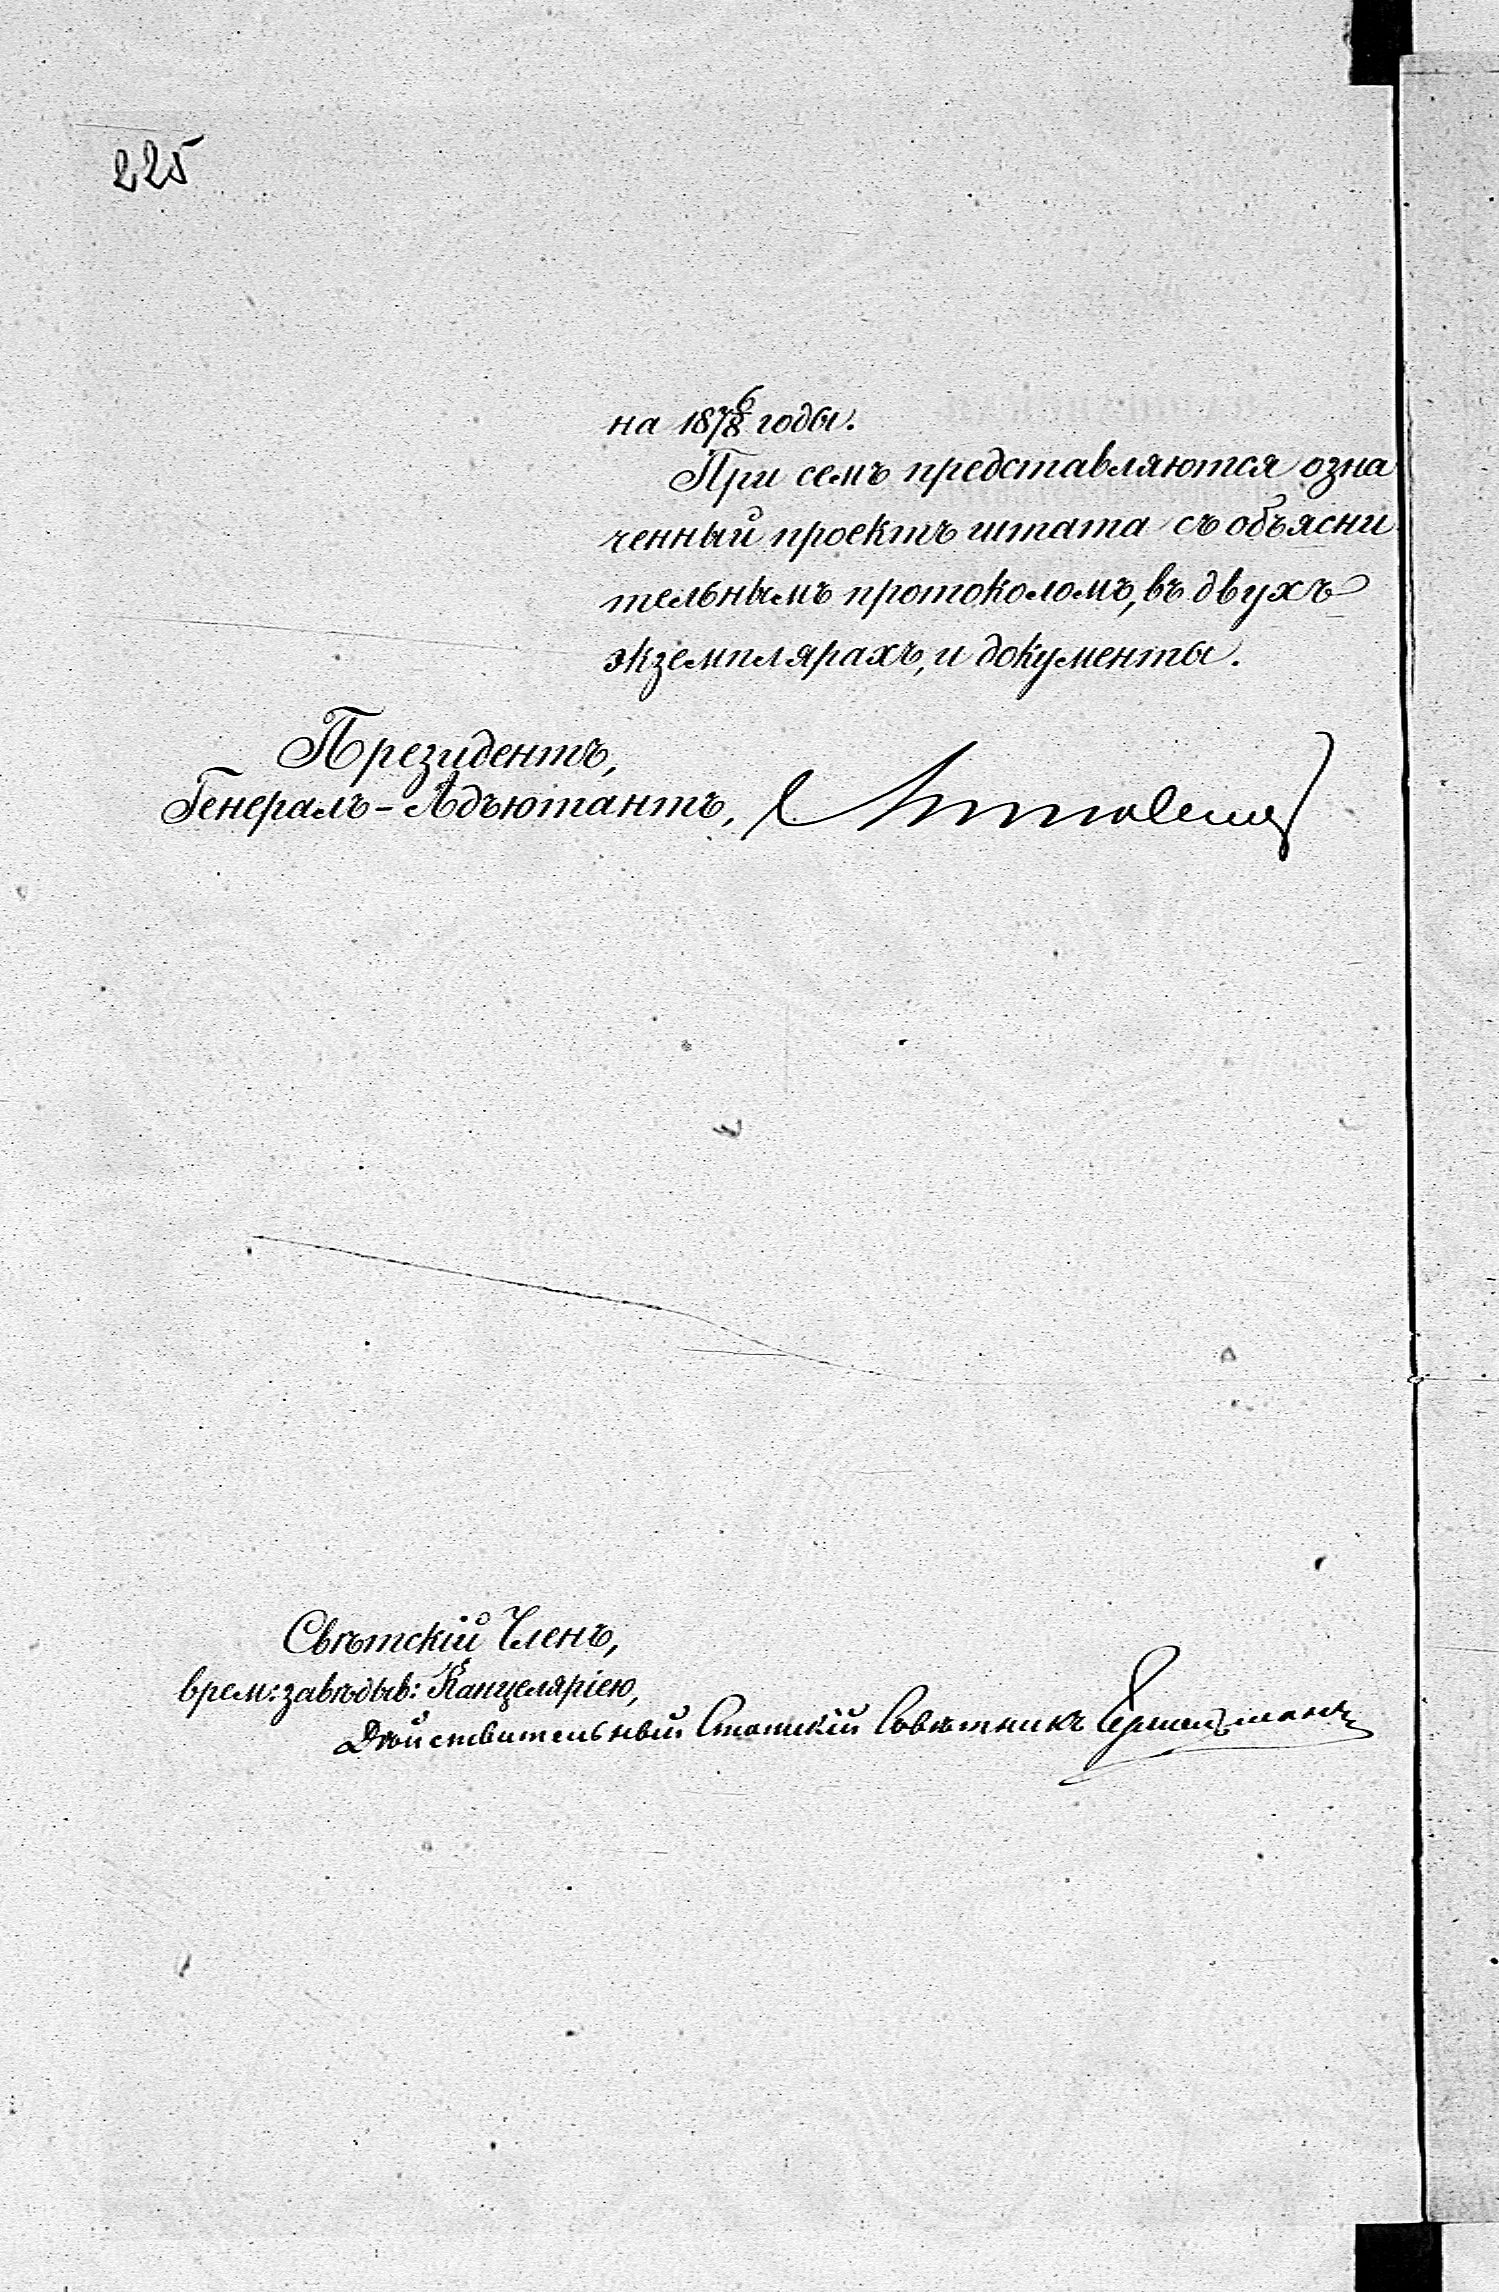 225
на 187 6/8 годы.
При семъ представляются озна
ченный проектъ штата съ объясни
тельнымъ протоколомъ, въ двухъ
экземплярахъ, и документы.
Президентъ,
Генералъ-Адъютантъ,
Свѣтскій Членъ,
врем: завѣдыв: Канцеляріею,
Дѣйствительный Статскій Совѣтникъ